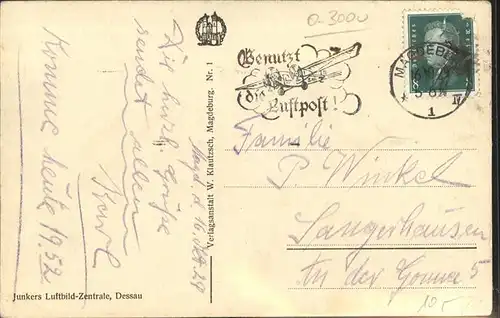 0-3000
Benutzt
die
Luftpost!
MAGDEBURG
1
Die herzl. Grüße
sendet allen
Karl
Komme heute 19.52
Magd. d. 16. Okt. 29
Verlagsanstalt W. Klautzsch, Magdeburg. Nr. 1
Familie
P. Winkel
Sangerhausen
An der Gonna 5
10-
Junkers Luftbild-Zentrale, Dessau